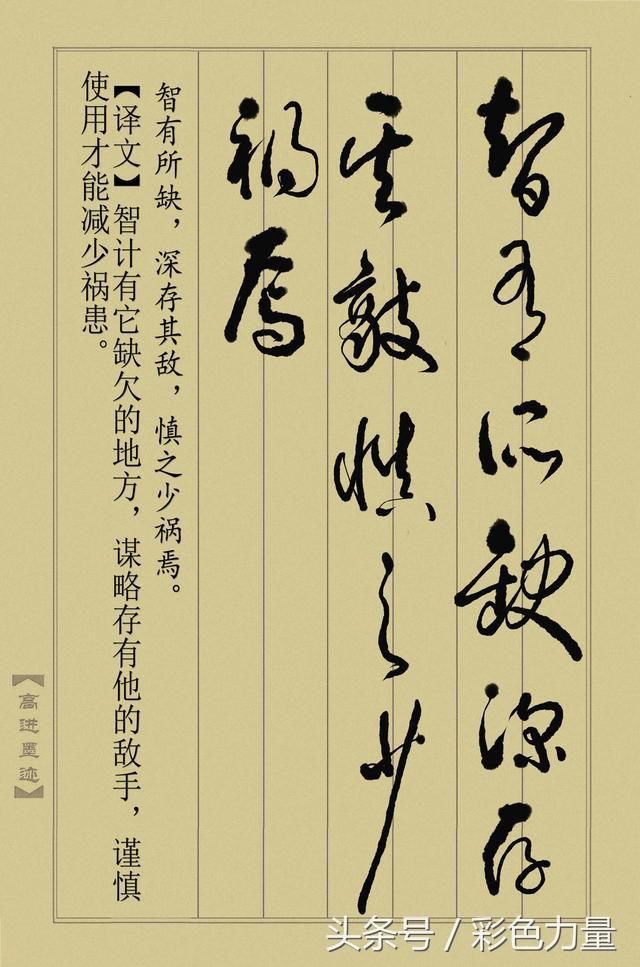 智有所缺深存
其敌慎之少
祸焉
智有所缺，深存其敌，慎之少祸焉。
【译文】智计有它缺欠的地方，谋略存有他的敌手，谨慎
使用才能减少祸患。
【高进墨迹】
头条号／彩色力量